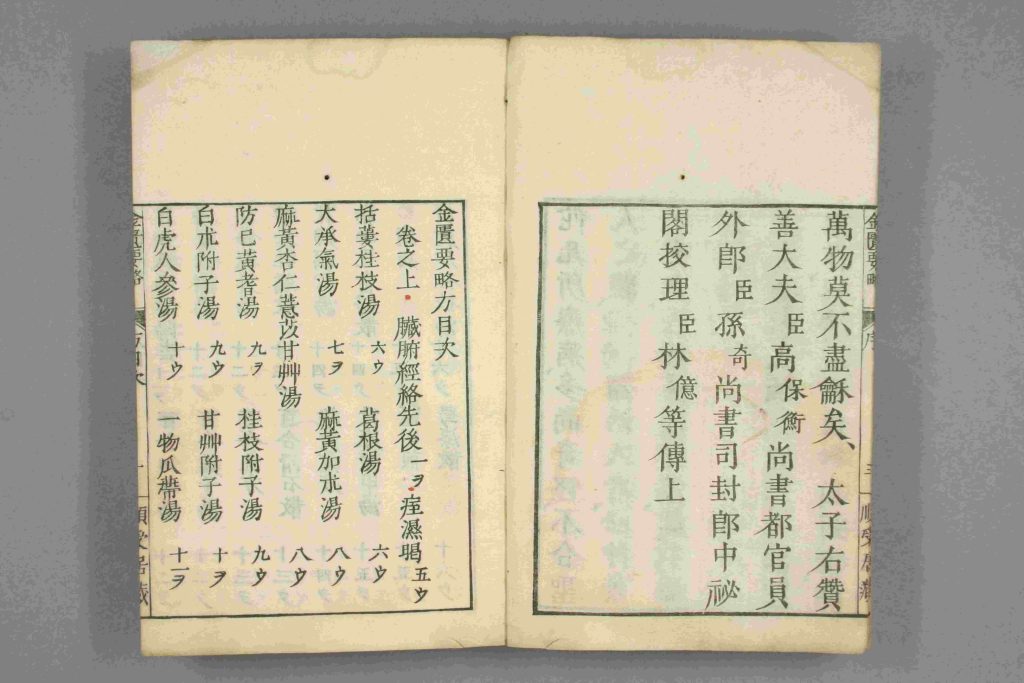 萬物莫不盡龢矣、太子右贊
善大夫臣高保衡尚書都官員
外郎臣孫奇尚書司封郎中祕
閣挍理臣林億等傳上
金匱要略方目次
卷之上 臟腑經絡先後一ヲ 痓濕暍五ウ
括蔞桂枝湯六ウ 葛根湯六ウ
大承氣湯七ヲ 麻黃加朮湯八ウ
麻黃杏仁薏苡甘艸湯八ウ
防已黃耆湯九ヲ 桂枝附子湯九ウ
白朮附子湯九ウ 甘艸附子湯十ヲ
白虎人參湯十ウ 一物瓜蔕湯十一ヲ